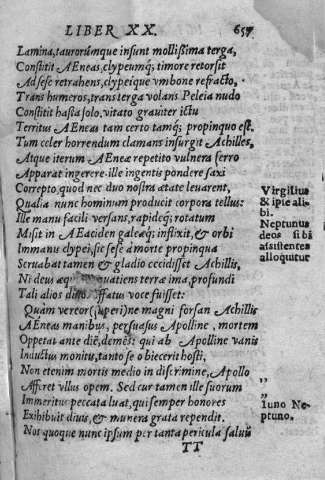 LIBER XX. 657
Lamina, taurorúmque insunt mollißima terga,
Constitit AEneas, clypeumq; timore retorsit
Adsese retrahens, clypeique vmbone refracto,
Trans humeros, trans terga volans Peleia nudo
Constitit hasta solo, vitato grauiter ictu
Territus AEneas tam certo tamq; propinquo est.
Tum celer horrendum clamans insurgit Achilles,
Atque iterum AEneæ repetito vulnera ferro
Apparat ingerere. ille ingentis pondere saxi
Correpto, quod nec duo nostra ætate leuarent,
Qualia nunc hominum producit corpora tellus:
Ille manu facili versans, rapideq; rotatum
Misit in AEaciden galeæq; inflixit, & orbi
Immanis clypei, sic sese a morte propinqua
Seruabat tamen & gladio cecidisset Achillis,
Ni deus æq quatiens terræ ima, profundi
Tali alios dicto affatus voce fuisset:
Quàm vereor (superi) ne magni forsan Achillis
AEneas manibus, persuasus Apolline, mortem
Oppetat ante diē, demēs: qui ab Apolline vanis
Inductus monitu, tanto se obiecerit hosti,
Non etenim mortis medio in discrimine, Apollo
Afferet vllus opem. Sed cur tamen ille suorum
Immeritus peccata luat, qui semper honores
Exibibuit diuis, & munera grata rependit.
Nos quoque nunc ipsum per tanta pericula saluū
TT
Virgilius
& ipse ali-
bi.
Neptunus
deos sibi
assistentes
alloquitur
„
„
Iuno Ne-
ptuno.